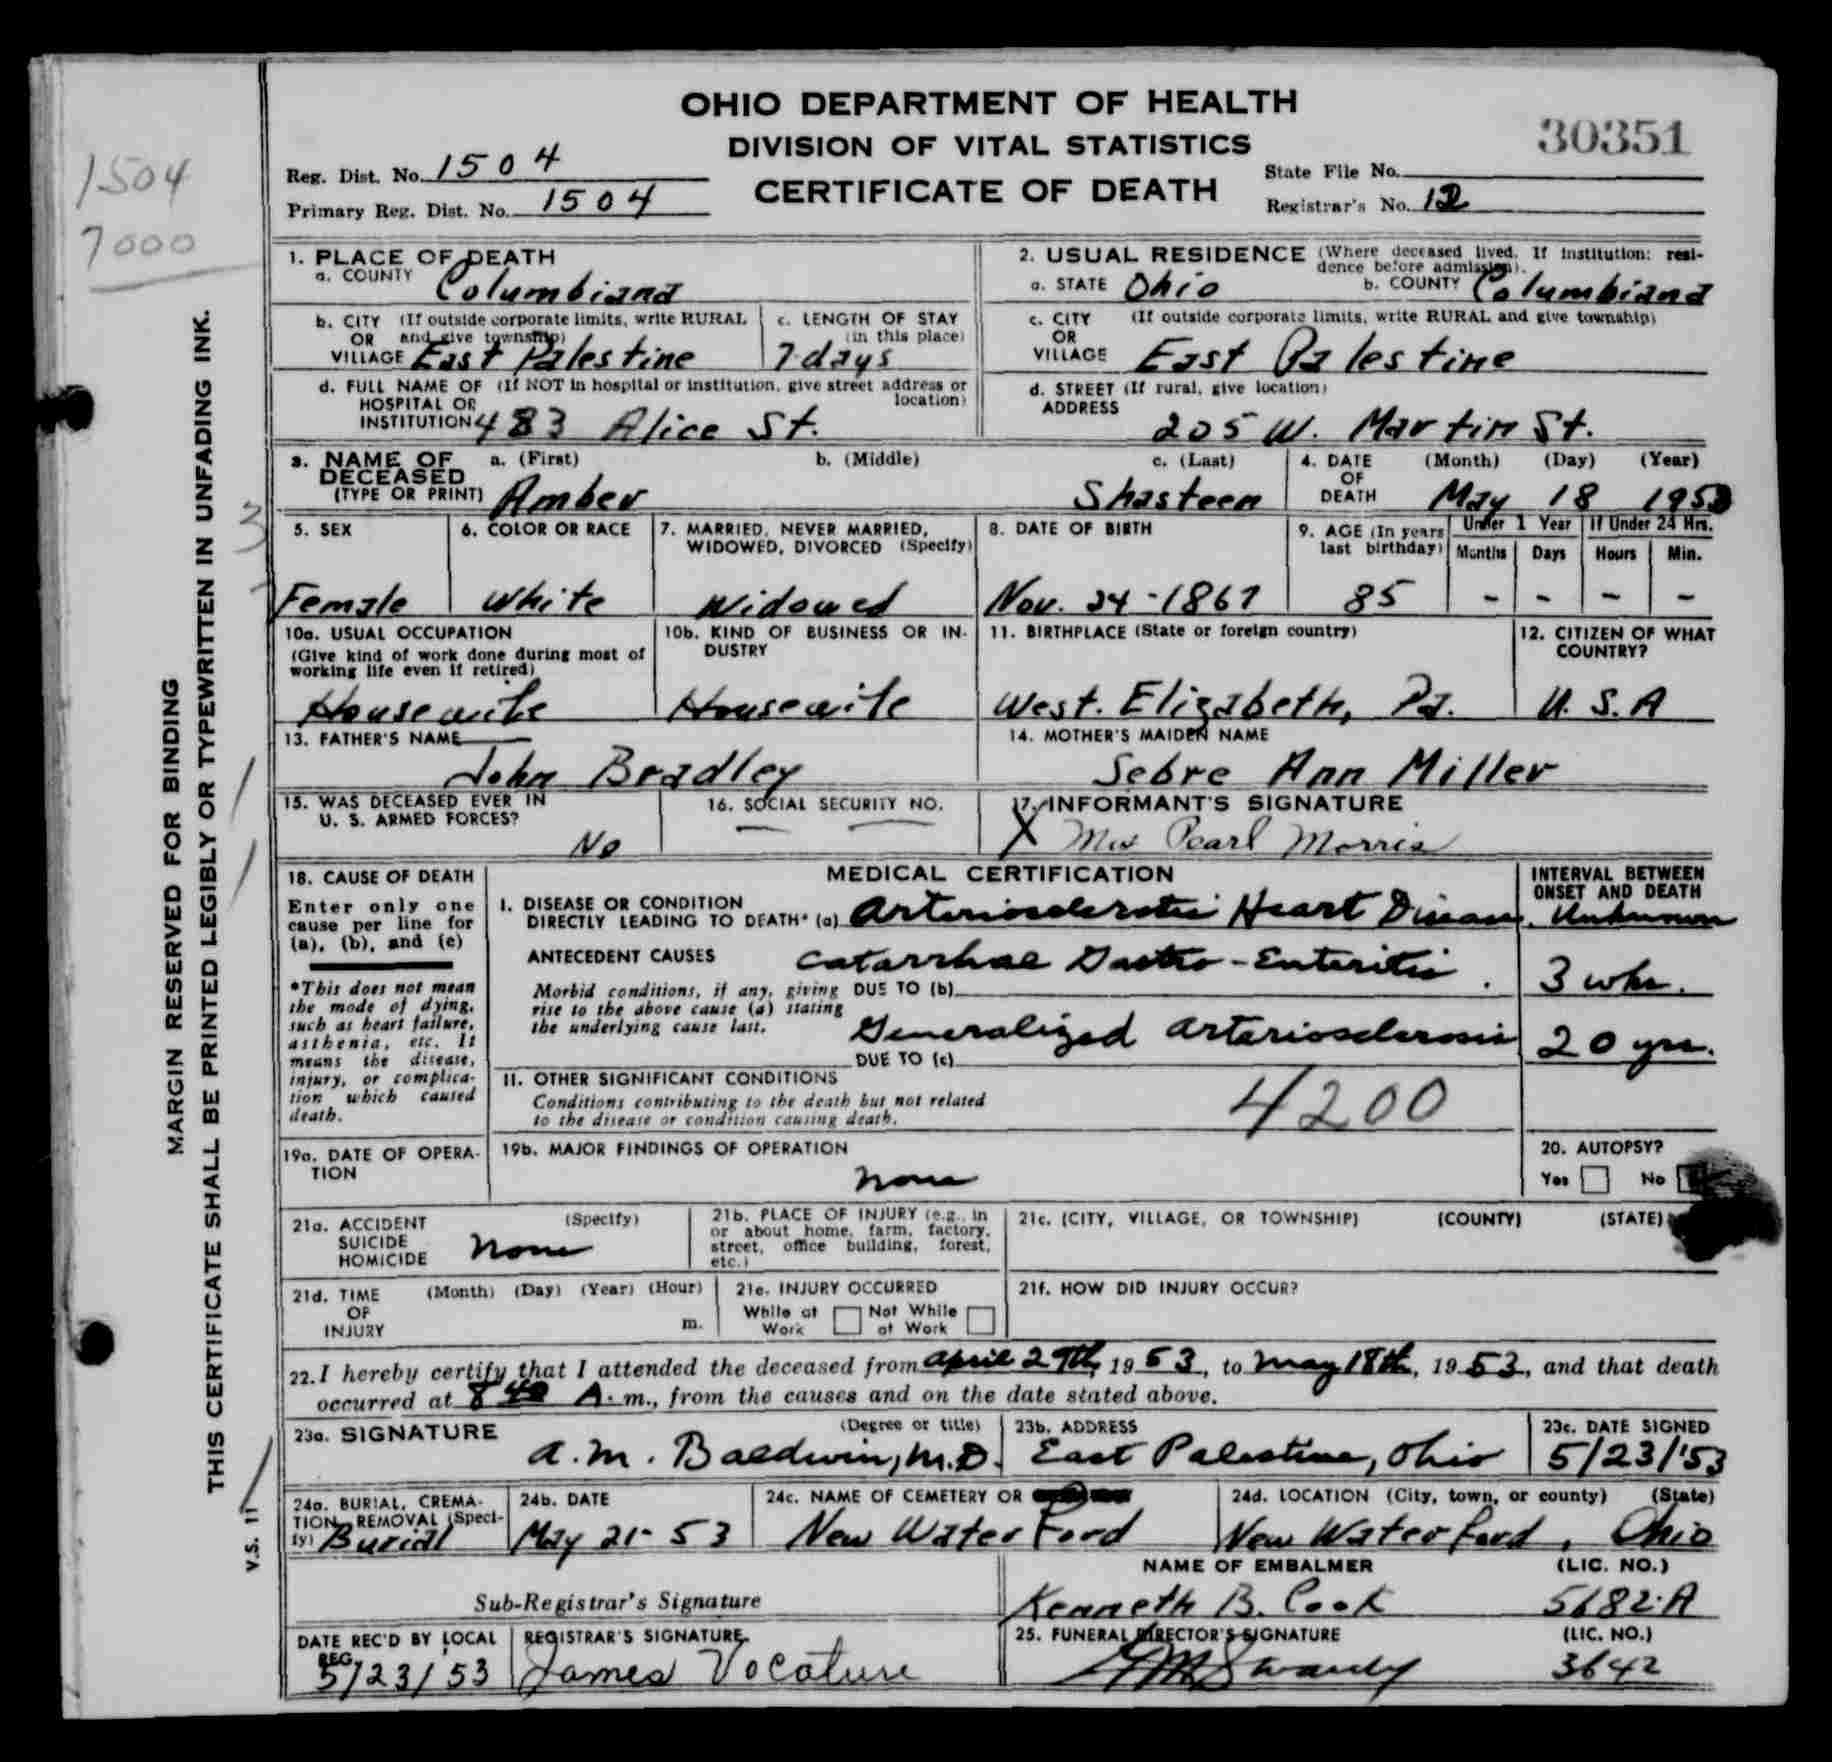 OHIO DEPARTMENT OF HEALTH
DIVISION OF VITAL STATISTICS
CERTIFICATE OF DEATH
30351
1504
7000
Reg. Dist. No. 1504
Primary Reg. Dist. No. 1504
State File No.
Registrar's No. 12
MARGIN RESERVED FOR BINDING
THIS CERTIFICATE SHALL BE PRINTED LEGIBLY OR TYPEWRITTEN IN UNFADING INK.
V.S. 11
3
1. PLACE OF DEATH
a. COUNTY Columbiana
b. CITY (If outside corporate limits, write RURAL
OR and give township)
VILLAGE East Palestine
c. LENGTH OF STAY
(in this place)
7 days
d. FULL NAME OF (If NOT in hospital or institution, give street address or
HOSPITAL OR location)
INSTITUTION 483 Alice St.
2. USUAL RESIDENCE (Where deceased lived. If institution: resi-
dence before admission).
a. STATE Ohio b. COUNTY Columbiana
c. CITY (If outside corporate limits, write RURAL and give township)
OR
VILLAGE East Palestine
d. STREET (If rural, give location)
ADDRESS
205 W. Martin St.
3. NAME OF a. (First) b. (Middle) c. (Last)
DECEASED
(TYPE OR PRINT) Amber Shasteen
4. DATE (Month) (Day) (Year)
OF
DEATH May 18 1953
5. SEX
Female
6. COLOR OR RACE
White
7. MARRIED, NEVER MARRIED,
WIDOWED, DIVORCED (Specify)
Widowed
8. DATE OF BIRTH
Nov. 24-1867
9. AGE (In years
last birthday)
85
Under 1 Year If Under 24 Hrs.
Months Days Hours Min.
- - - -
10a. USUAL OCCUPATION
(Give kind of work done during most of
working life even if retired)
Housewife
10b. KIND OF BUSINESS OR IN-
DUSTRY
Housewife
11. BIRTHPLACE (State or foreign country)
West. Elizabeth, Pa.
12. CITIZEN OF WHAT
COUNTRY?
U. S. A
13. FATHER'S NAME
John Bradley
14. MOTHER'S MAIDEN NAME
Sebre Ann Miller
15. WAS DECEASED EVER IN
U. S. ARMED FORCES?
No
16. SOCIAL SECURITY NO.
17. INFORMANT'S SIGNATURE
X Mrs Pearl Morris
18. CAUSE OF DEATH
Enter only one
cause per line for
(a), (b), and (c)
*This does not mean
the mode of dying,
such as heart failure,
asthenia, etc. It
means the disease,
injury, or complica-
tion which caused
death.
MEDICAL CERTIFICATION
INTERVAL BETWEEN
ONSET AND DEATH
I. DISEASE OR CONDITION
DIRECTLY LEADING TO DEATH* (a) Arteriosclerotic Heart Disease. Unknown
ANTECEDENT CAUSES
Catarrhal Gastro-Enteritis.
Morbid conditions, if any, giving DUE TO (b) 3 wks.
rise to the above cause (a) stating
the underlying cause last.
Generalized arteriosclerosis 20 yrs.
DUE TO (c)
II. OTHER SIGNIFICANT CONDITIONS
Conditions contributing to the death but not related
to the disease or condition causing death.
4200
19a. DATE OF OPERA-
TION
19b. MAJOR FINDINGS OF OPERATION
None
20. AUTOPSY?
Yes No
21a. ACCIDENT (Specify)
SUICIDE
HOMICIDE None
21b. PLACE OF INJURY (e.g., in
or about home, farm, factory,
street, office building, forest,
etc.)
21c. (CITY, VILLAGE, OR TOWNSHIP) (COUNTY) (STATE)
21d. TIME (Month) (Day) (Year) (Hour)
OF
INJURY m.
21e. INJURY OCCURRED
While at Not While
Work at Work
21f. HOW DID INJURY OCCUR?
22. I hereby certify that I attended the deceased from April 29th, 1953, to May 18th, 1953, and that death
occurred at 8 40 A. m., from the causes and on the date stated above.
23a. SIGNATURE (Degree or title)
A. M. Baldwin, M.D.
23b. ADDRESS
East Palestine, Ohio
23c. DATE SIGNED
5/23/'53
24a. BURIAL, CREMA-
TION, REMOVAL (Speci-
fy) Burial
24b. DATE
May 21-53
24c. NAME OF CEMETERY OR
New Waterford
24d. LOCATION (City, town, or county) (State)
New Waterford, Ohio
Sub-Registrar's Signature
NAME OF EMBALMER (LIC. NO.)
Kenneth B. Cook 5682-A
DATE REC'D BY LOCAL
REG.
5/23/53
REGISTRAR'S SIGNATURE
James Vocature
25. FUNERAL DIRECTOR'S SIGNATURE (LIC. NO.)
3642